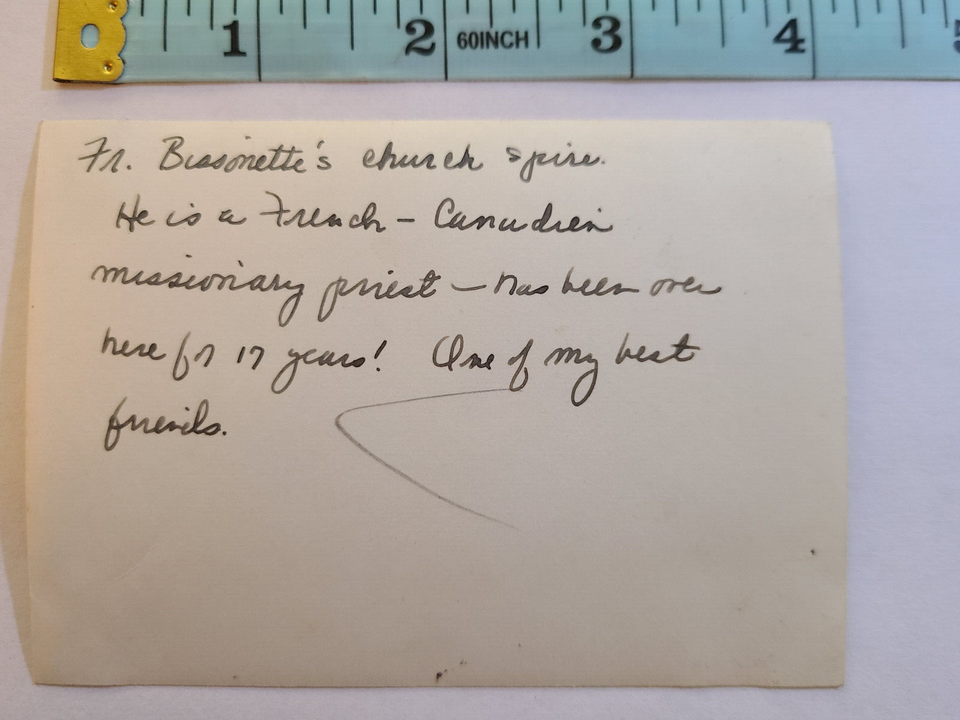 1 2 60INCH 3 4 5
Fr. Bissonette's church spire.
He is a French - Canadien
missionary priest - has been over
here for 17 years! One of my best
friends.